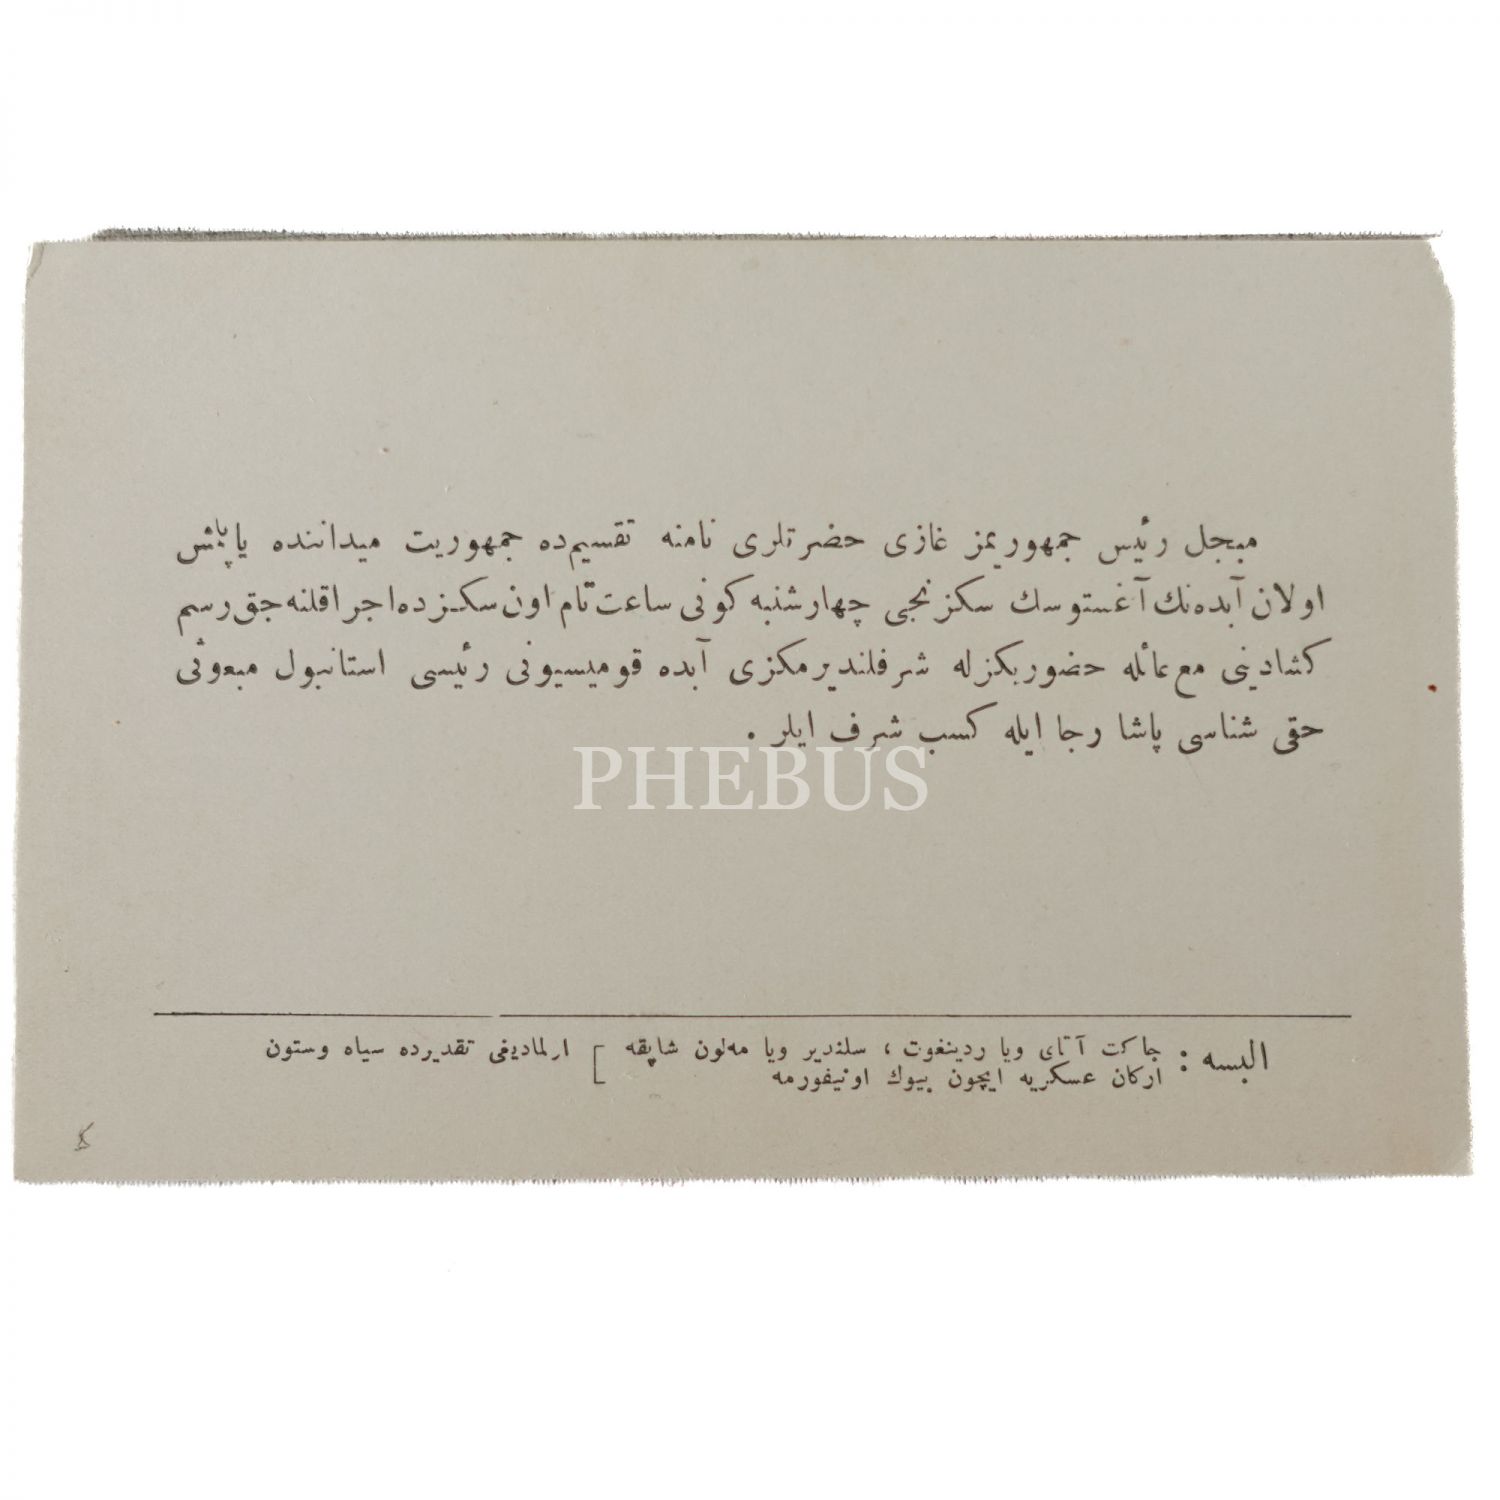 مبجل رئیس جمهوریمز غازی حضرتلری نامنه تقسیمده جمهوریت میداننده یاپیلمش
اولان آبده‌نك آغستوسك سكزنجی چهارشنبه كونی ساعت تام اون سكزده اجرا قلنه‌جق رسم
كشادینی مع عائله حضوریكزله شرفلندیرمكزی آبده قومیسیونی رئیسی استانبول مبعوثی
حقی شناسی پاشا رجا ایله كسب شرف ایلر .
PHEBUS
البسه : جاكت آتای ویا ردینغوت ، سلندیر ویا مه‌لون شاپقه [ اولمادیغی تقدیرده سیاه وستون
اركان عسكریه ایچون بیوك اونیفورمه